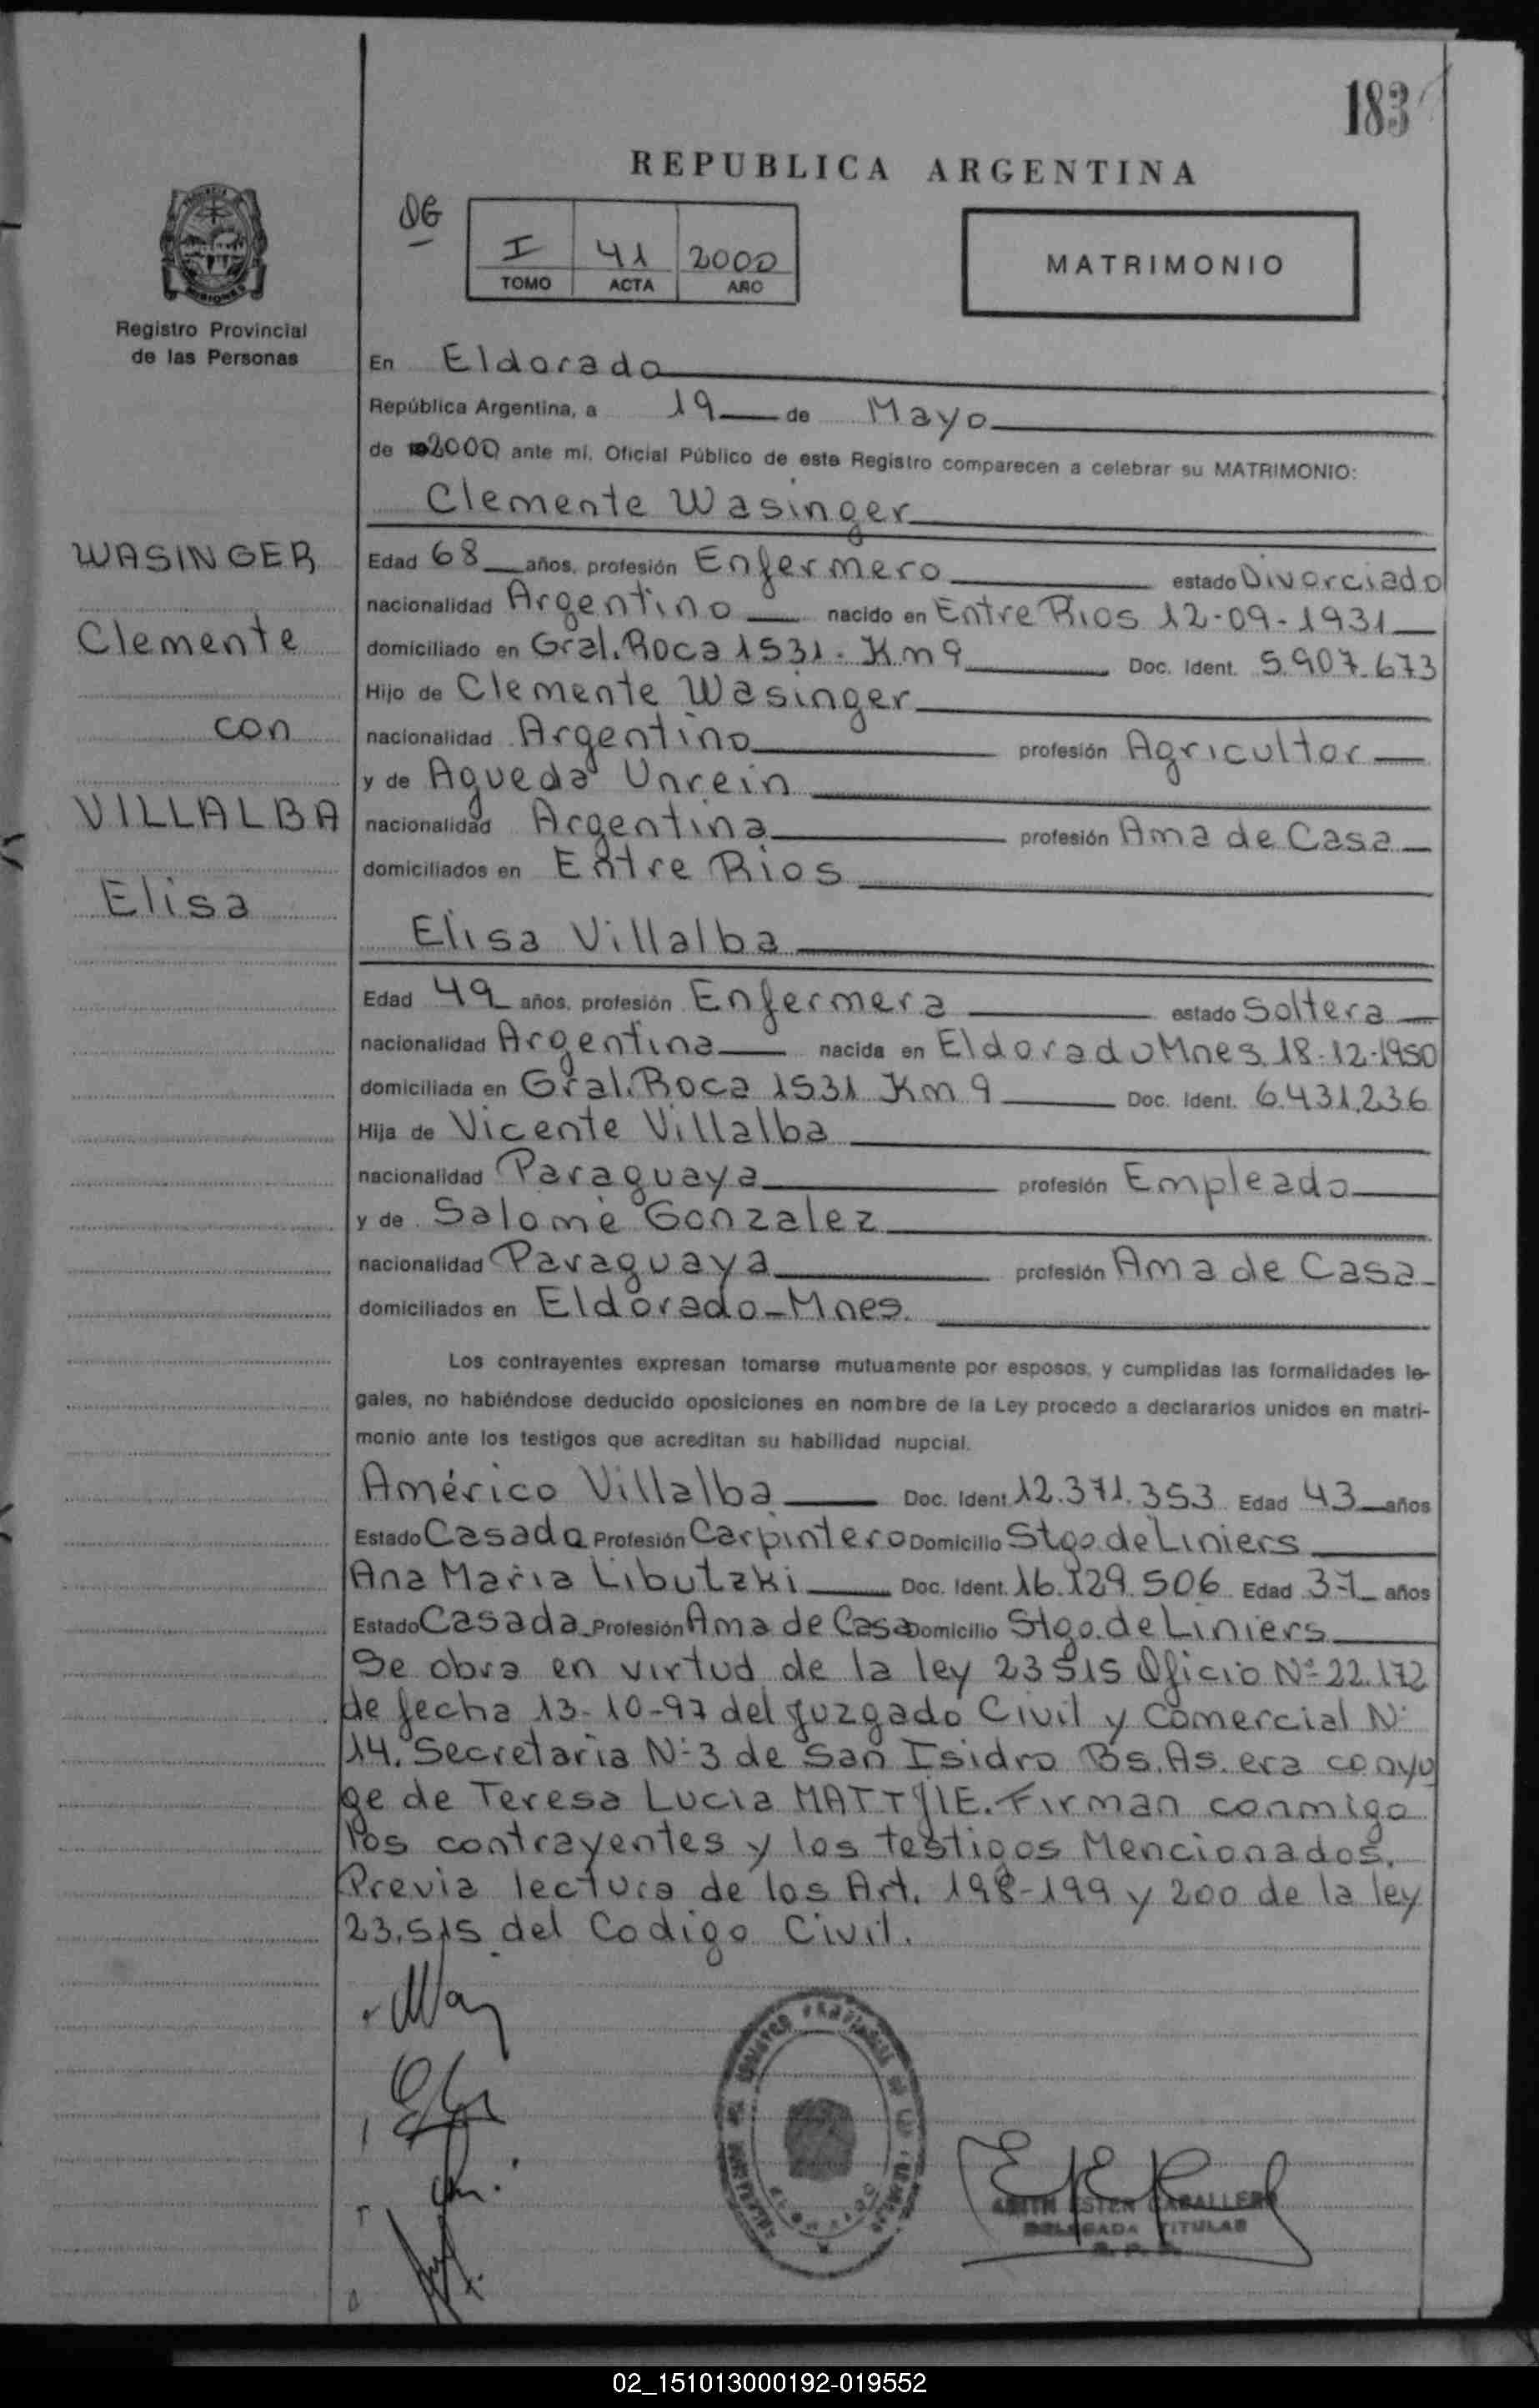 183
REPUBLICA ARGENTINA
DG
I 41 2000
TOMO ACTA AÑO
MATRIMONIO
MISIONES
Registro Provincial
de las Personas
En Eldorado
República Argentina, a 19 de Mayo
de 2000 ante mí, Oficial Público de este Registro comparecen a celebrar su MATRIMONIO:
Clemente Wasinger
WASINGER
Clemente
con
VILLALBA
Elisa
Edad 68 años, profesión Enfermero estado Divorciado
nacionalidad Argentino nacido en Entre Rios 12-09-1931
domiciliado en Gral. Roca 1531. Km 9 Doc. Ident. 5.907.673
Hijo de Clemente Wasinger
nacionalidad Argentino profesión Agricultor
y de Agueda Unrein
nacionalidad Argentina profesión Ama de Casa
domiciliados en Entre Rios
Elisa Villalba
Edad 49 años, profesión Enfermera estado Soltera
nacionalidad Argentina nacida en Eldorado Mnes. 18-12-1950
domiciliada en Gral. Roca 1531 Km 9 Doc. Ident. 6.431.236
Hija de Vicente Villalba
nacionalidad Paraguaya profesión Empleado
y de Salome Gonzalez
nacionalidad Paraguaya profesión Ama de Casa
domiciliados en Eldorado-Mnes.
Los contrayentes expresan tomarse mutuamente por esposos, y cumplidas las formalidades le-
gales, no habiéndose deducido oposiciones en nombre de la Ley procedo a declararlos unidos en matri-
monio ante los testigos que acreditan su habilidad nupcial.
Américo Villalba Doc. Ident 12.371.353 Edad 43 años
Estado Casado Profesión Carpintero Domicilio Stgo de Liniers
Ana Maria Libutzki Doc. Ident. 16.129.506 Edad 37 años
Estado Casada Profesión Ama de Casa Domicilio Stgo. de Liniers
Se obra en virtud de la ley 23515 Oficio Nº 22.172
de fecha 13-10-97 del Juzgado Civil y Comercial N:
14. Secretaria N:3 de San Isidro Bs. As. era conyu
ge de Teresa Lucia MATTJIE. Firman conmigo
los contrayentes y los testigos Mencionados.
Previa lectura de los Art. 198-199 y 200 de la ley
23.515 del Codigo Civil.
ESTER CABALLERO
DELEGADA TITULAR
ELDORADO
02_151013000192-019552